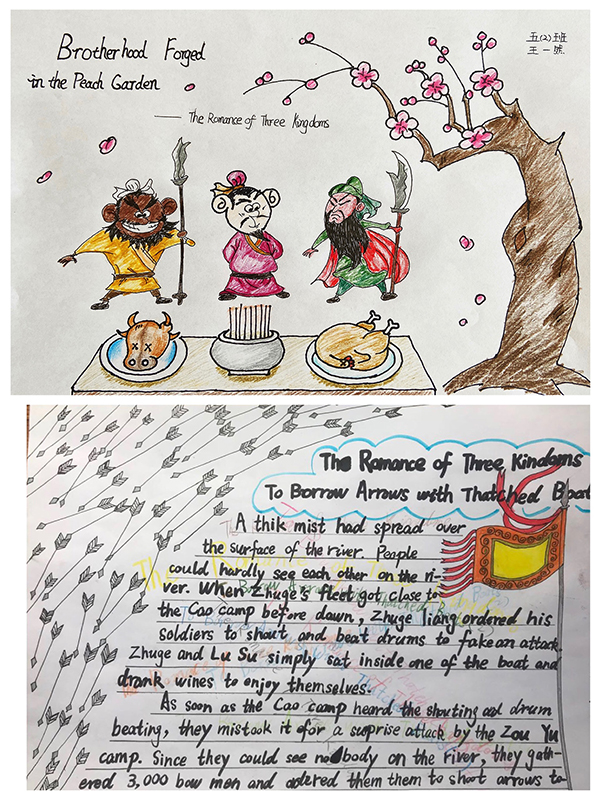 Brotherhood Forged
in the Peach Garden
—— The Romance of Three Kingdoms
五(2)班
王一
The Romance of Three Kindoms
To Borrow Arrows with Thatched Boat
A thik mist had spread over
the surface of the river. People
could hardly see each other on the ri-
ver. When Zhuge's fleet got close to
the Cao camp before dawn, Zhuge liang ordered his
soldiers to shout and beat drums to fake an attack.
Zhuge and Lu Su simply sat inside one of the boat and
drank wines to enjoy themselves.
As soon as the Cao camp heard the shouting and drum
beating, they mistook it for a suprise attack by the Zou Yu
camp. Since they could see nobody on the river, they gath-
ered 3,000 bow men and odered them them to shoot arrows to-